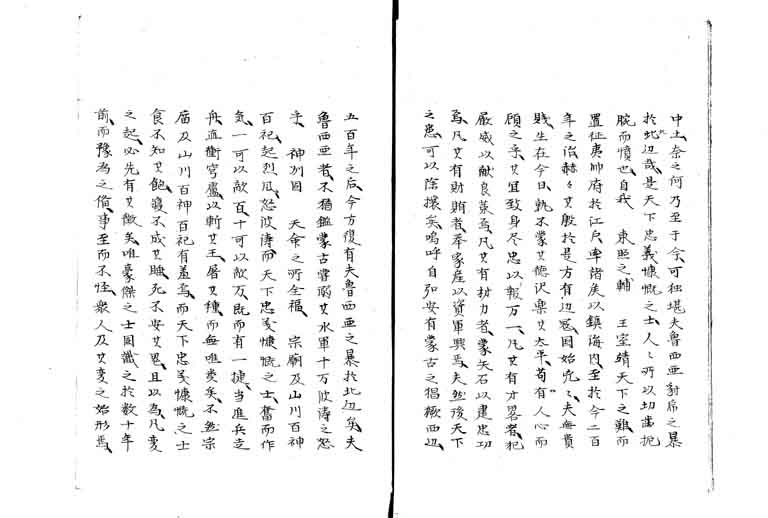 中土奈之何乃至于今可独堪夫魯西亜豺席之暴
於北辺哉是天下忠義慷慨之士人々所以切歯扼
腕而憤也自我 東照之輔 王室靖天下之難而
置征夷帥府於江戸率諸矦以鎮海内至於今二百
年之治赫々其殷於是方有辺冦因始兇々夫無貴
賎生在今日孰不蒙其徳沢楽其太平苟有人心而
顧之乎其宜致身尽忠以報万一凡其有才畧者犯
厳威以献良策焉凡其有材力者蒙矢石以建忠功
焉凡其有財賄者奉家産以資軍興焉夫然後天下
之患可以除攘矣嗚呼自弘安有蒙古之猖獗西辺
五百年之后今方復有夫魯西亜之暴於北辺矣夫
魯西亜者不猶鑑蒙古嘗溺其水軍十万波涛之怒
乎 神州固 天命之所全福 宗廟及山川百神
百祀起烈風怒波涛而天下忠義慷慨之士奮而作
気一可以敵百十可以敵万既而有一捷当進兵走
舟直衝穹廬以斬其王屠其種而無唯類矣不然宗
庿及山川百神百祀有羞焉而天下忠義慷慨之士
食不知其飽寝不成其睡死不安其思且以為凡変
之起必先有其徴矣唯豪傑之士因識之於数十年
前而豫為之備事至而不怪衆人及其変之始形焉